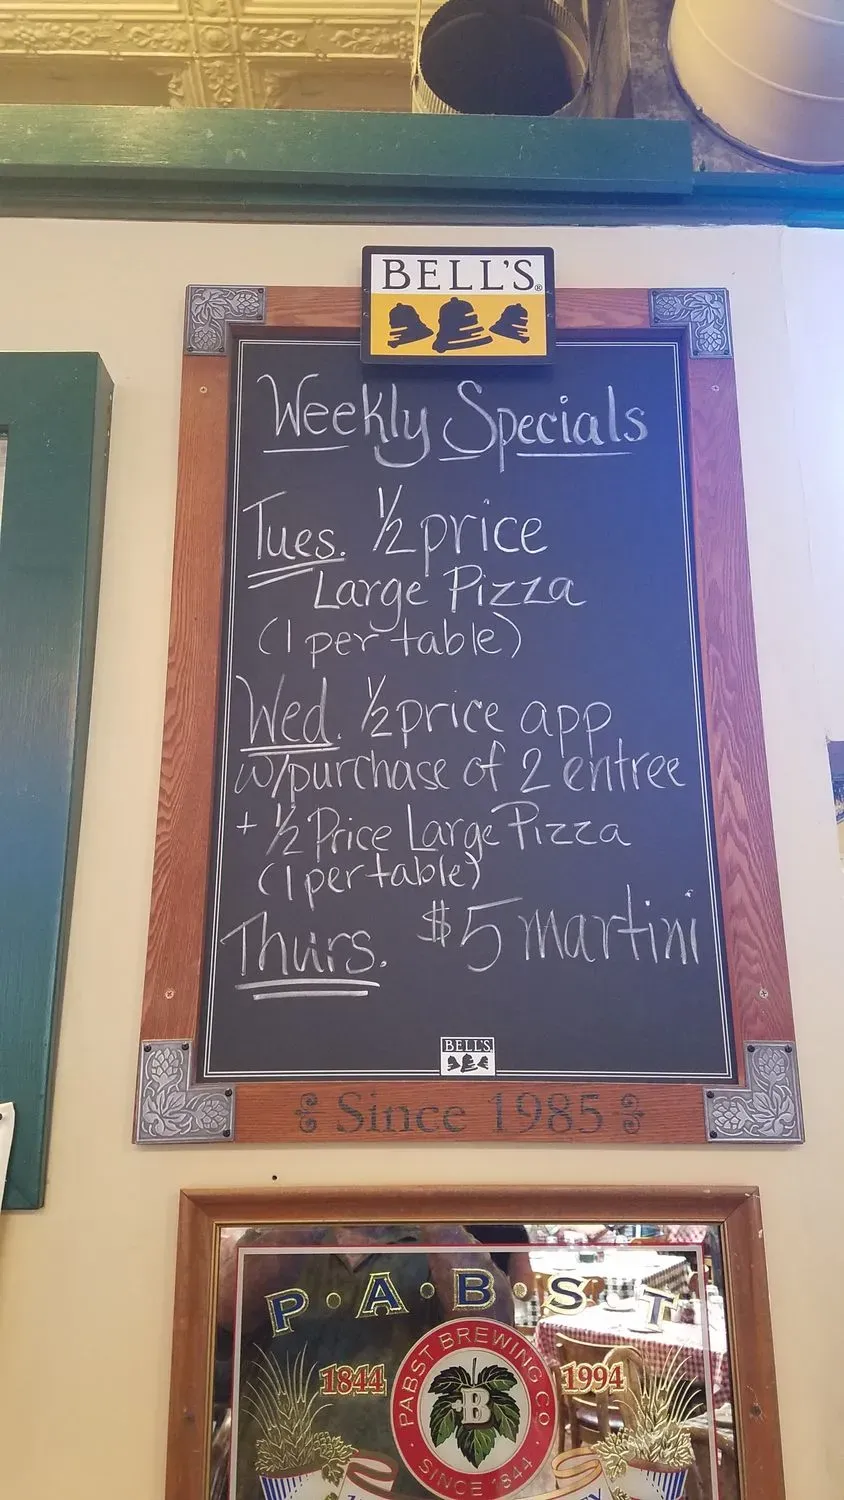 BELL'S®
Weekly Specials
Tues. 1/2 price
Large Pizza
(1 per table)
Wed. 1/2 price app
w/purchase of 2 entree
+ 1/2 Price Large Pizza
(1 per table)
Thurs. $5 martini
BELL'S
Since 1985
P·A·B·S·T
1844 1994
PABST BREWING CO
B
SINCE 1844